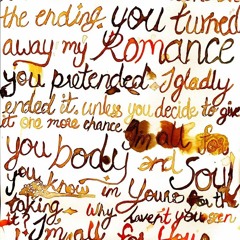 the ending. you turned
away my Romance
you pretended. I gladly
ended it, unless you decide to give
it one more chance I'm all for
you body and soul
you know im yours for the
taking
it? Why haven't you seen
i'm all for you